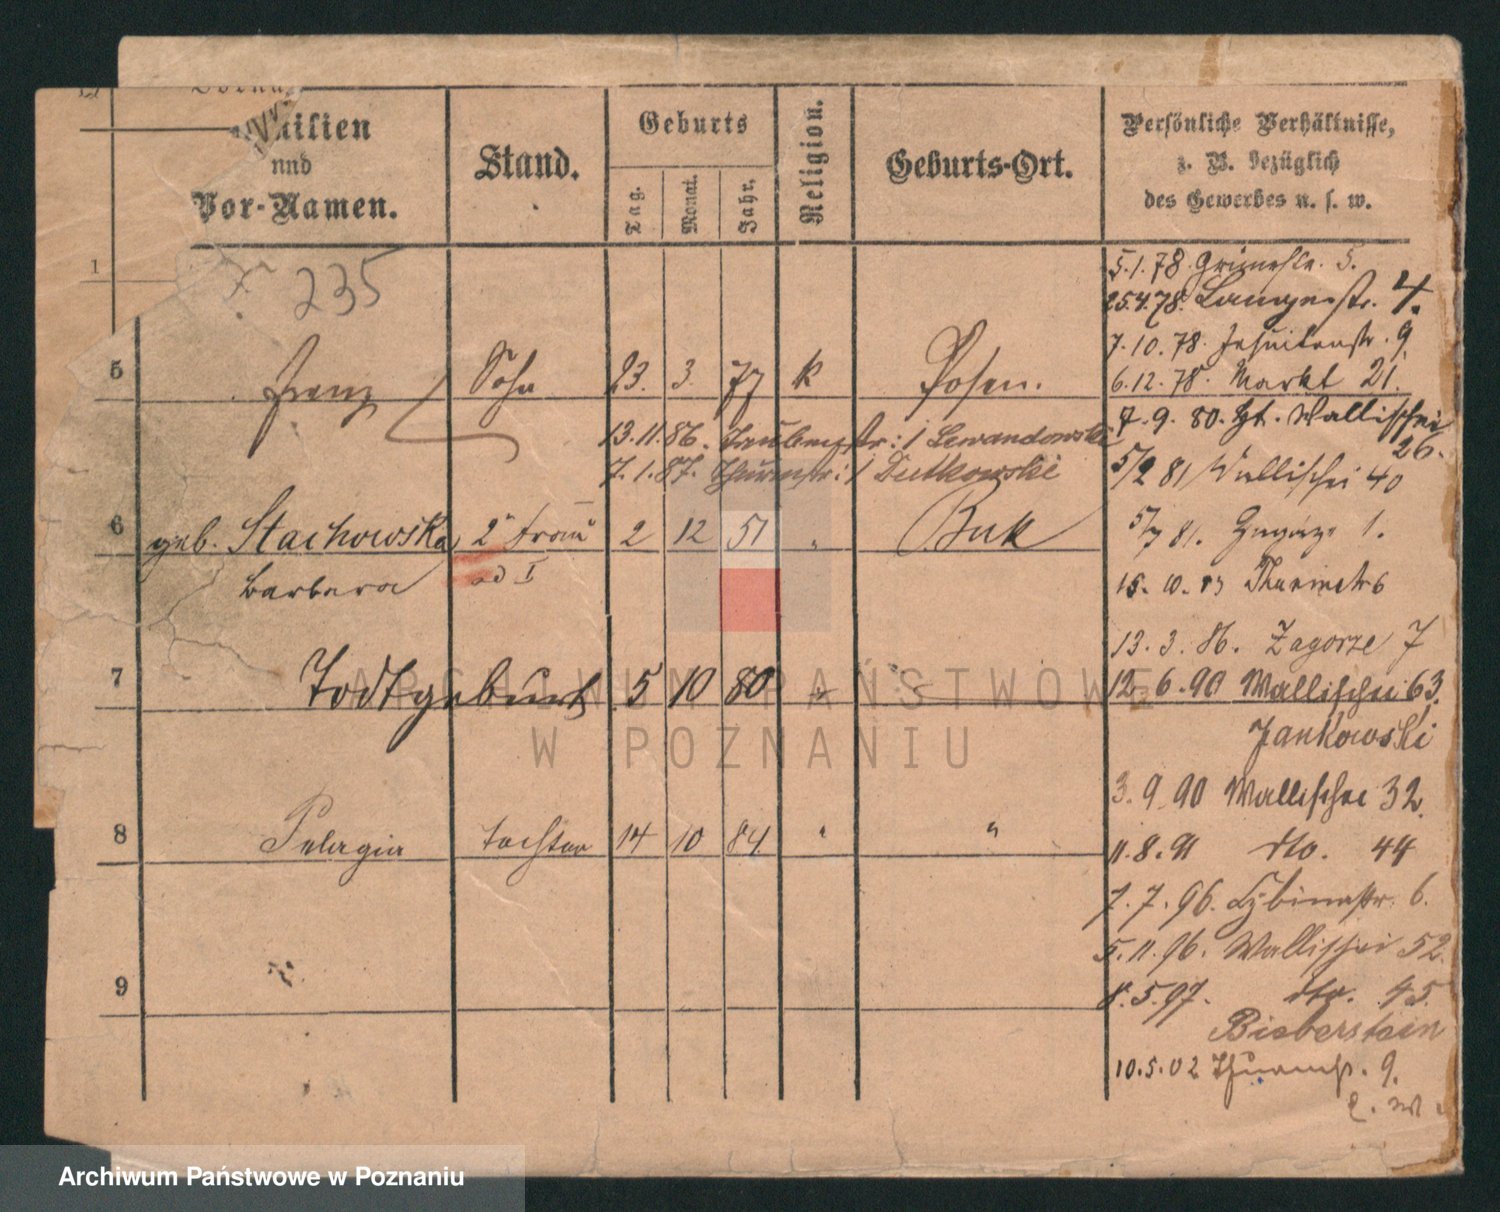 Familien
und
Vor-Namen.
Stand.
Geburts
Tag.
Monat.
Jahr.
Religion.
Geburts-Ort.
Persönliche Verhältnisse,
z. B. bezüglich
des Gewerbes u. s. w.
1
235
5.1.78. Grünestr. 5.
25.4.78. Langestr. 4.
7.10.78. Jesuitenstr. 9.
5 Franz Sohn 23. 3. 77 k Posen.
6.12.78. Markt 21.
7.9.80. Wallischei
26.
13.11.86. Taubenstr: 1 Lewandowski
7.1.87. Thurmstr: 1 Dutkowski
5/2 81 Wallischei 40
6 geb. Stachowska 2te Frau 2 12 51 " Buk
Barbara ad I
5/7 81. Zagórze 1.
15.10.83 Thurmstr 6
13.3.86. Zagorze 7
7 Todtgeburt 5 10 80 "
12.6.90 Wallischei 63.
Jankowski
3.9.90 Wallischei 32.
8 Pelagia Tochter 14 10 84 " "
11.8.91 dto. 44
7.7.96. Cybinastr. 6.
5.11.96. Wallischei 52.
9
8.5.97. dto. 45.
Bieberstein
10.5.02 Thurmstr. 9.
ARCHIWUM PAŃSTWOWE
W POZNANIU
Archiwum Państwowe w Poznaniu